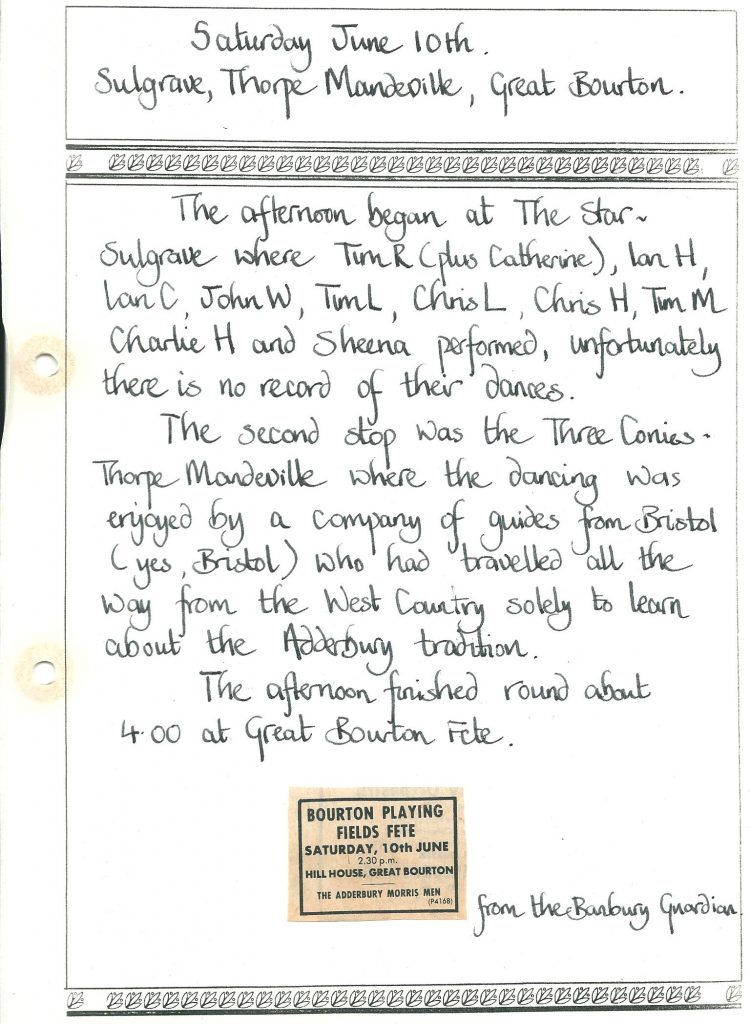 Saturday June 10th.
Sulgrave, Thorpe Mandeville, Great Bourton.
The afternoon began at The Star ~
Sulgrave where Tim R (plus Catherine), Ian H,
Ian C, John W, Tim L, Chris L, Chris H, Tim M
Charlie H and Sheena performed, unfortunately
there is no record of their dances.
The second stop was the Three Conies -
Thorpe Mandeville where the dancing was
enjoyed by a company of guides from Bristol
(yes, Bristol) who had travelled all the
way from the West Country solely to learn
about the Adderbury tradition.
The afternoon finished round about
4.00 at Great Bourton Fete.
BOURTON PLAYING
FIELDS FETE
SATURDAY, 10th JUNE
2.30 p.m.
HILL HOUSE, GREAT BOURTON
THE ADDERBURY MORRIS MEN
(P4168)
from the Banbury Guardian.